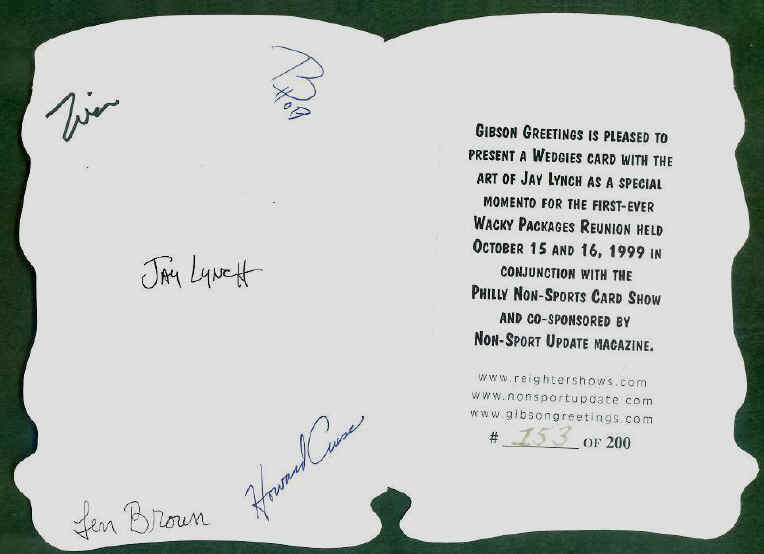 JAY LYNCH
Howard Cruse
Len Brown
GIBSON GREETINGS IS PLEASED TO
PRESENT A WEDGIES CARD WITH THE
ART OF JAY LYNCH AS A SPECIAL
MOMENTO FOR THE FIRST-EVER
WACKY PACKAGES REUNION HELD
OCTOBER 15 AND 16, 1999 IN
CONJUNCTION WITH THE
PHILLY NON-SPORTS CARD SHOW
AND CO-SPONSORED BY
NON-SPORT UPDATE MAGAZINE.
www.reightershows.com
www.nonsportupdate.com
www.gibsongreetings.com
# 153 OF 200